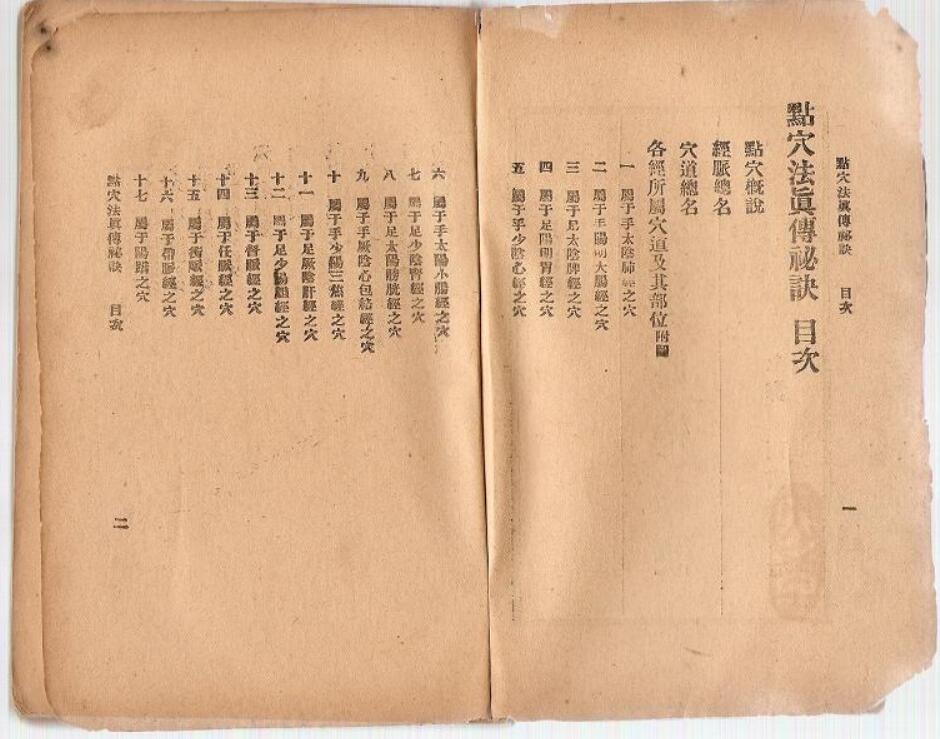 點穴法眞傳祕訣 目次 一
點穴法眞傳祕訣 目次
點穴概說
經脈總名
穴道總名
各經所屬穴道及其部位附圖
一 屬于手太陰肺經之穴
二 屬于手陽明大腸經之穴
三 屬于足太陰脾經之穴
四 屬于足陽明胃經之穴
五 屬于手少陰心經之穴
六 屬于手太陽小腸經之穴
七 屬于足少陰腎經之穴
八 屬于足太陽膀胱經之穴
九 屬于手厥陰心包絡經之穴
十 屬于手少陽三焦經之穴
十一 屬于足厥陰肝經之穴
十二 屬于足少陽膽經之穴
十三 屬于督脈經之穴
十四 屬于任脈經之穴
十五 屬于衝脈經之穴
十六 屬于帶脈經之穴
十七 屬于陽蹻之穴
點穴法眞傳祕訣 目次 二